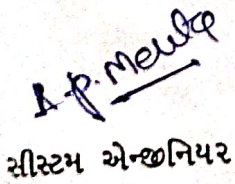 A.P. Mehta
સીસ્ટમ એન્જીનિયર